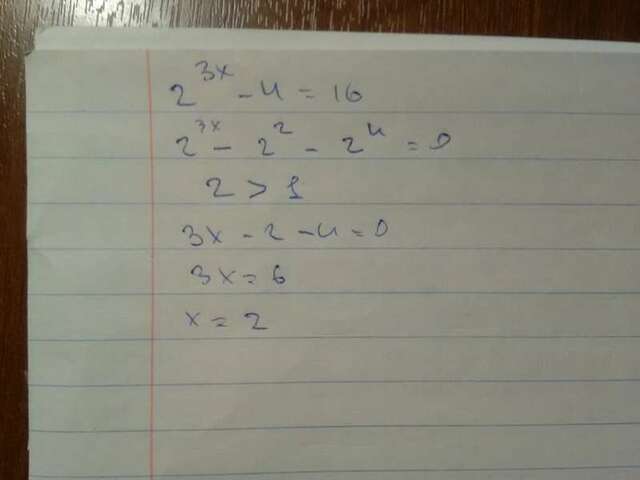 2^{3x} - 4 = 16
2^{3x} - 2^2 - 2^4 = 0
2 > 1
3x - 2 - 4 = 0
3x = 6
x = 2